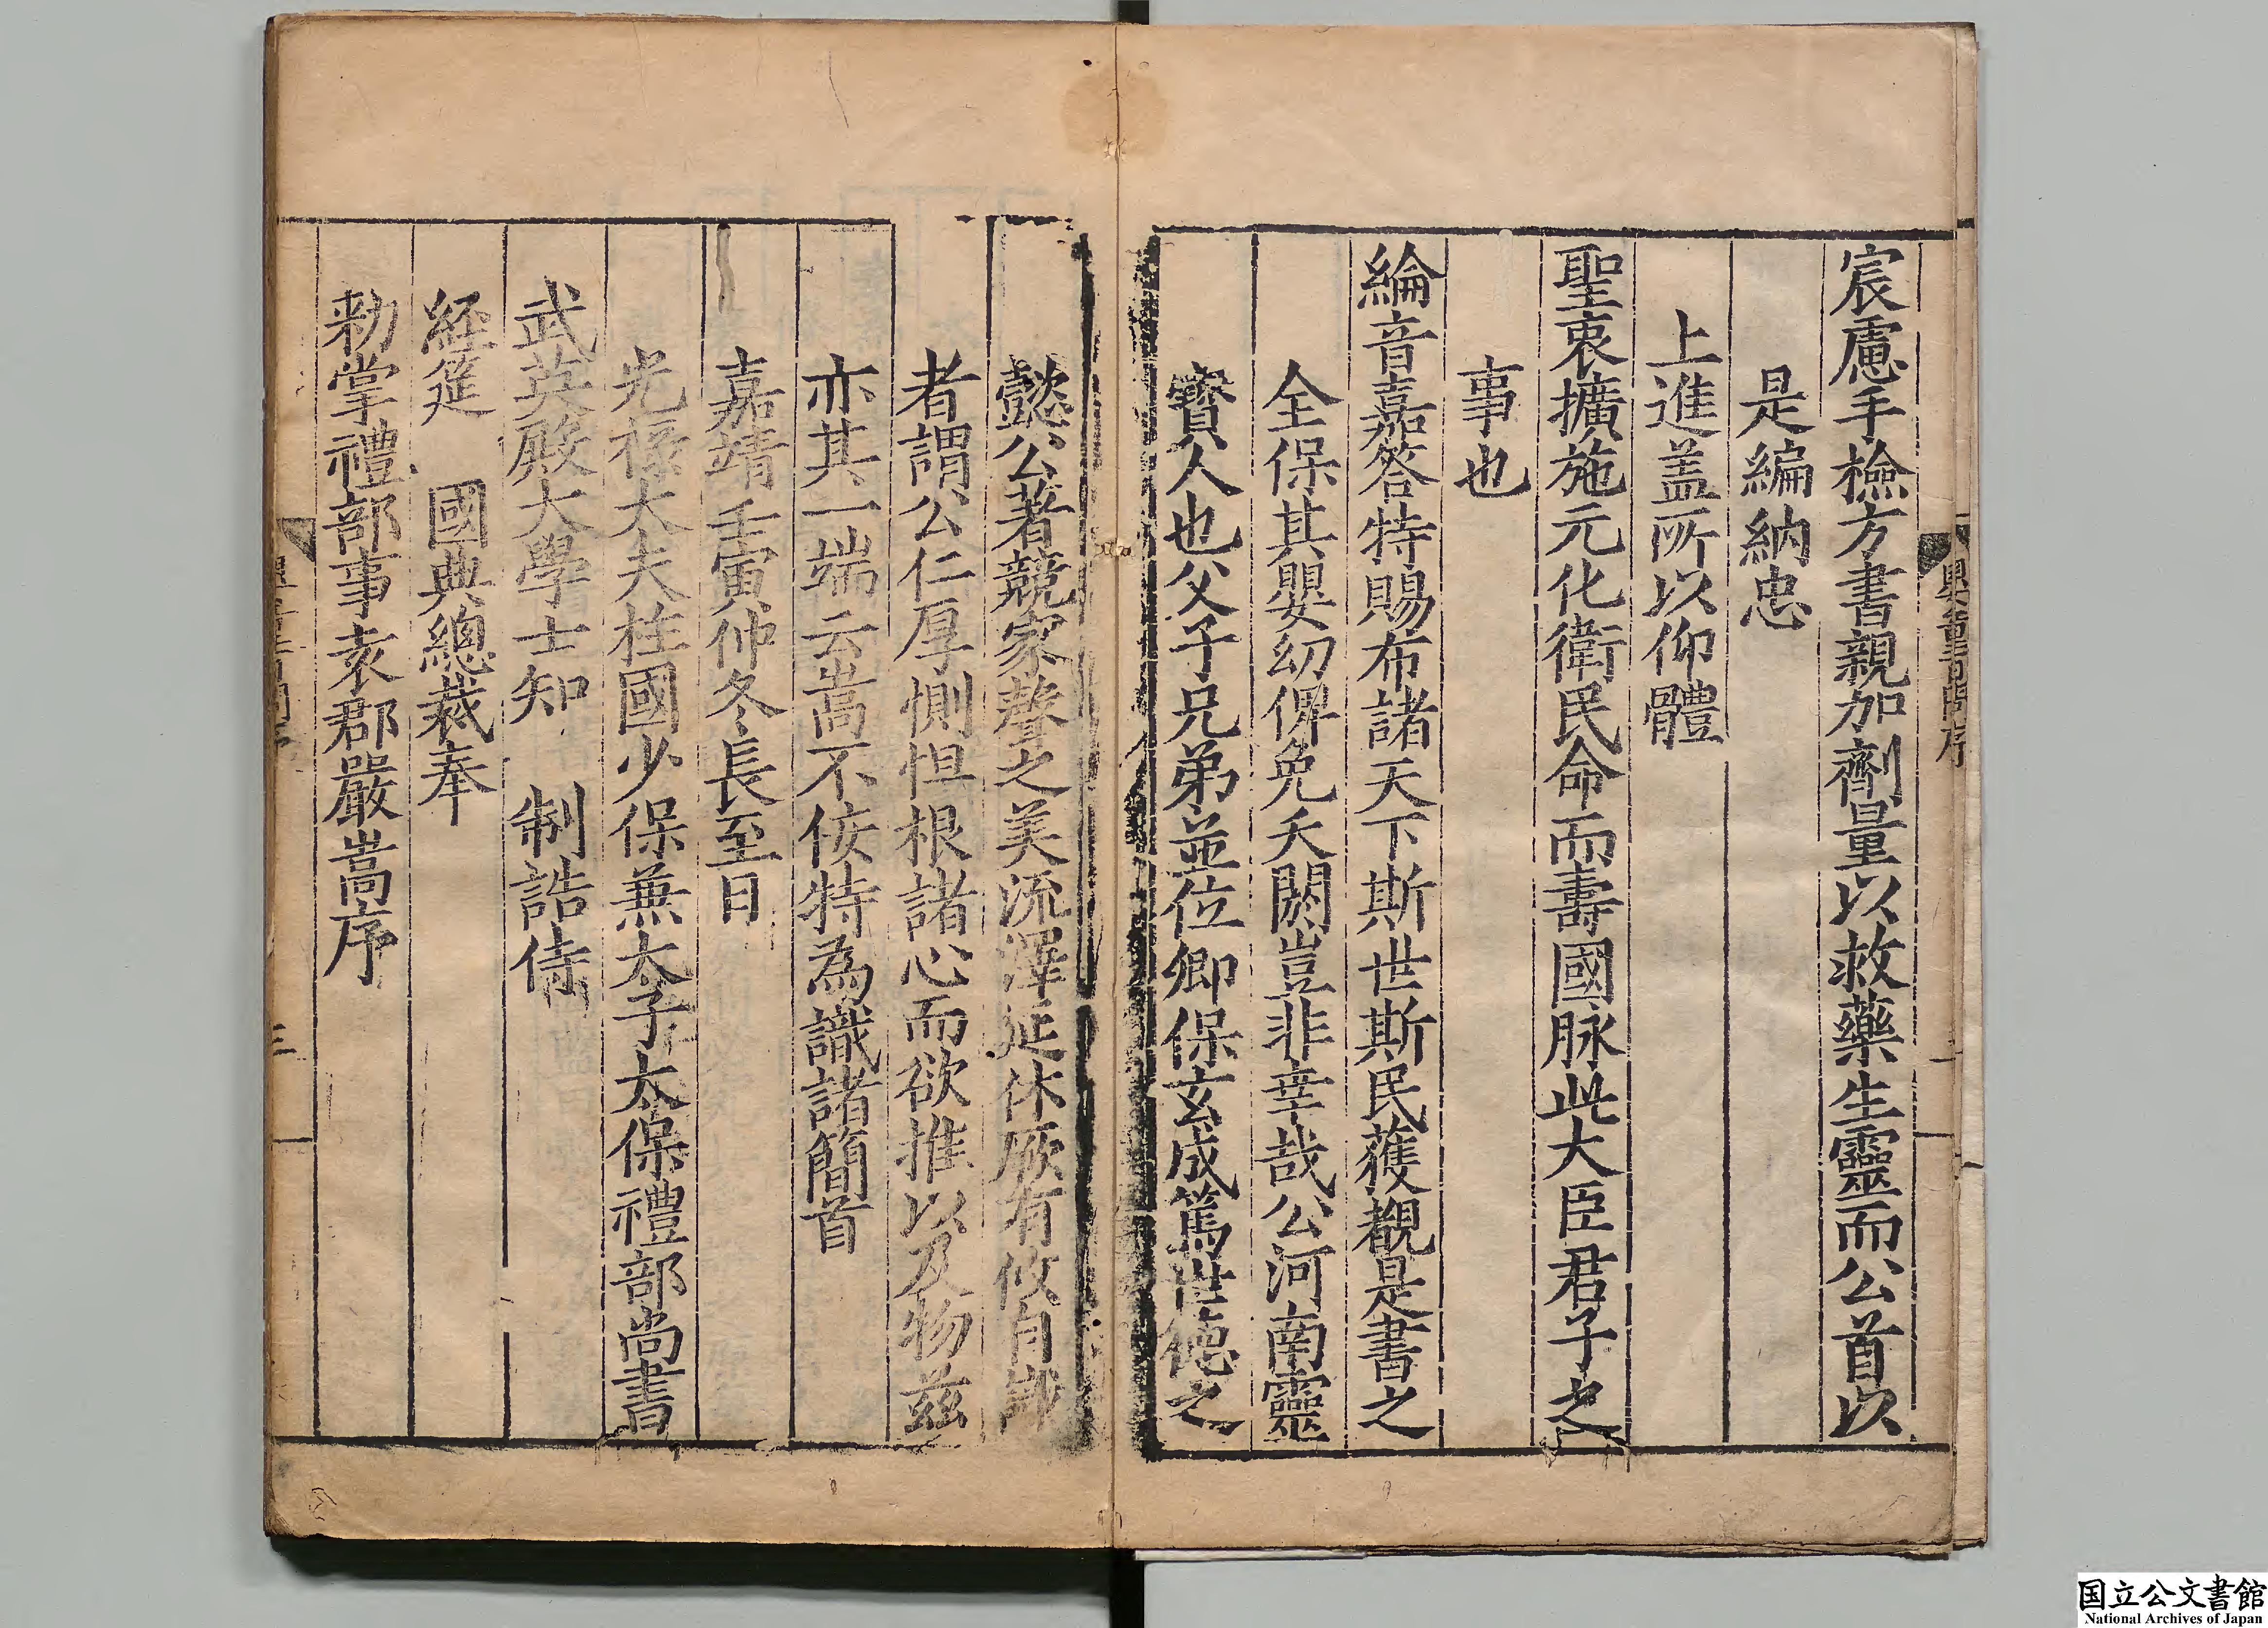 宸慮手檢方書親加劑量以救藥生靈而公首以
是編納忠
上進盖所以仰體
聖衷擴施元化衛民命而壽國脉此大臣君子之
事也
綸音嘉答特賜布諸天下斯世斯民獲覩是書之
全保其嬰幼俾免夭閼豈非幸哉公河南靈
寳人也父子兄弟並位卿保玄成篤世德之
懿公著競家聲之美流澤延休厥有攸自
者謂公仁厚惻怛根諸心而欲推以及物茲
亦其一端云嵩不佞特為識諸簡首
嘉靖壬寅仲冬長至日
光祿大夫柱國少保兼太子太保禮部尚書
武英殿大學士知 制誥侍
経筵 國典總裁奉
勑掌禮部事袁郡嚴嵩序
三
国立公文書館
National Archives of Japan